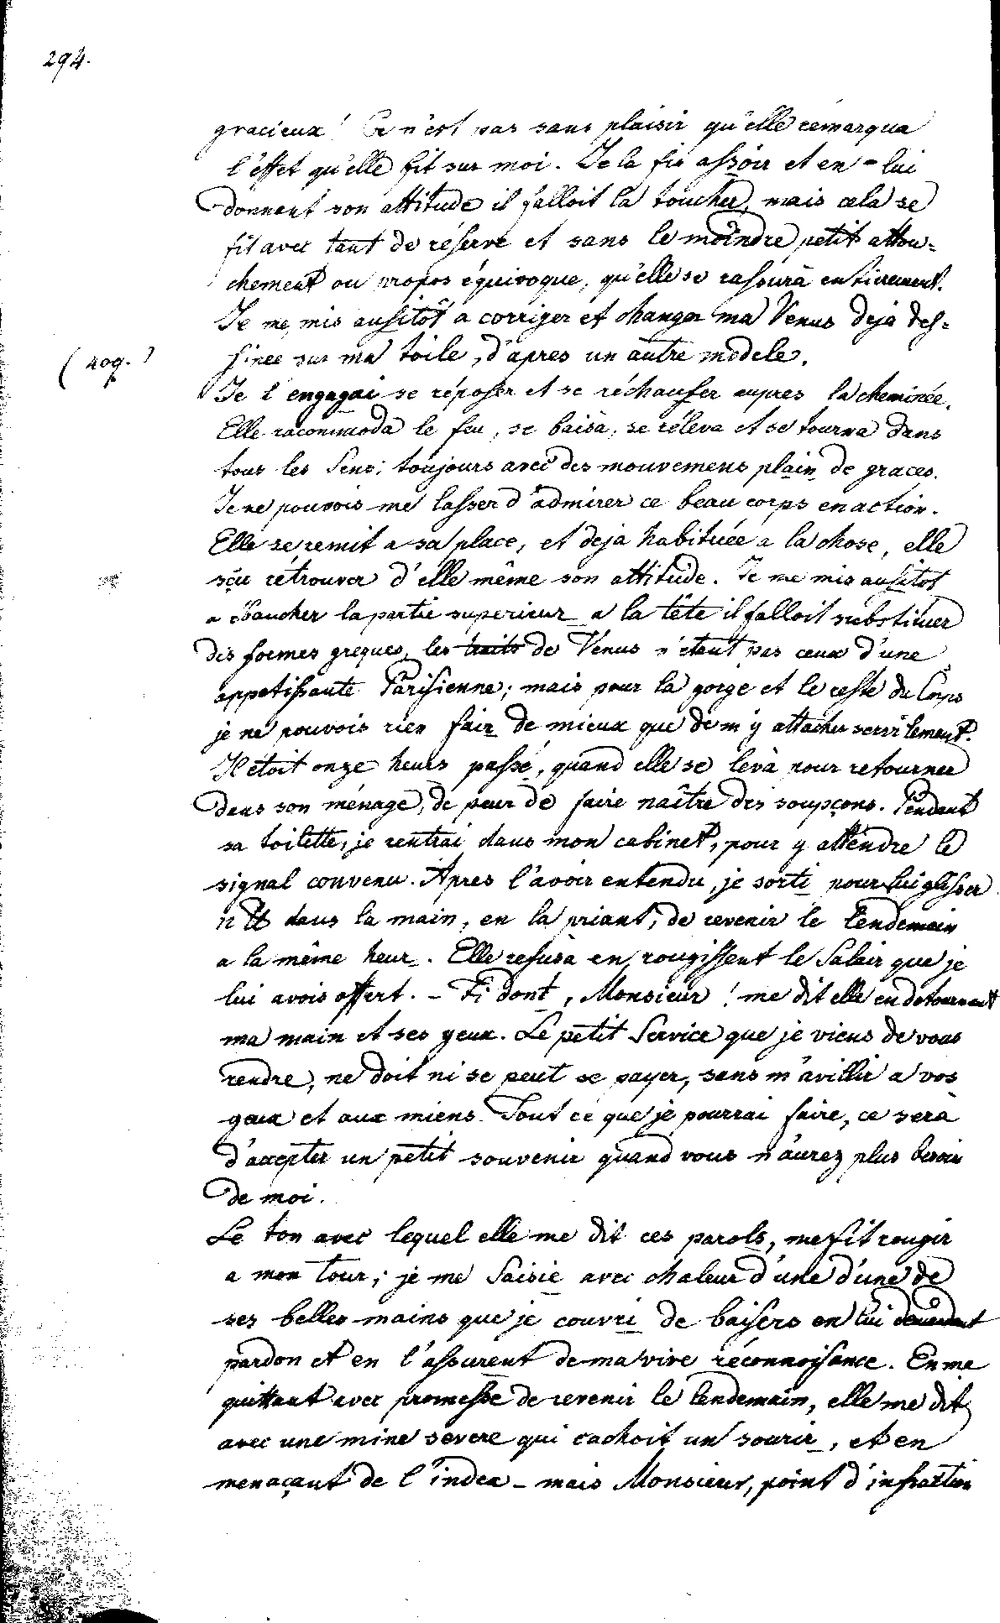 294.
gracieux ! Ce n'est pas sans plaisir qu'elle remarqua
l'effet qu'elle fit sur moi. Je la fis assoir et en - lui
donnant son attitude il falloit la toucher, mais cela se
fit avec tant de réserve et sans le moindre petit attou-
chement ou propos équivoque, qu'elle se rassura entierement.
Je me mis ausitôt a corriger et changer ma Venus deja des-
(409.)
sinée sur ma toile, d'apres un autre modele.
Je l'engagai se réposer et se réchaufer aupres la cheminée.
Elle racommoda le feu, se baisa, se réleva et se tourna dans
tous les sens; toujours avec des mouvemens plain de graces.
Je ne pouvois me lasser d'admirer ce beau corps en action.
Elle se remit a sa place, et deja habituée a la chose, elle
sçu rétrouver d'elle même son attitude. Je me mis ausitot
a ébaucher la partie superieur a la tête il falloit substituer
dis formes greques, les traits de Venus n'etant pas ceux d'une
appetissante Parisienne; mais pour la gorge et le reste du Corps
je ne pouvois rien fair de mieux que de m'y attacher servilement.
Il étoit onze heurs passé, quand elle se leva pour retourner
dans son ménage, de peur de faire naître dis soupçons. Pendant
sa toilette, je rentrai dans mon cabinet, pour y attendre le
signal convenu. Apres l'avoir entendu, je sorti pour lui glisser
12 dans la main, en la priant, de revenir le lendemain
a la même heur. Elle refusa en rougissent le Salair que je
lui avois offert. - Fi dont, Monsieur ! me dit elle en detournant
ma main et ses yeux. Le petit Service que je viens de vous
rendre, ne doit ni se peut se payer, sans m'avillir a vos
yeux et aux miens. Tout ce que je pourrai faire, ce sera
d'accepter un petit souvenir quand vous n'aurez plus besoin
de moi.
Le ton avec lequel elle me dit ces parols, me fit rougir
a mon tour; je me saisie avec chaleur d'une d'une de
ses belles mains que je couvri de baisers en lui demandant
pardon et en l'assurent de ma vive réconnoisance. En me
quittant avec promesse de revenir le lendemain, elle me dit
avec une mine severe qui cachoit un sourir, et en
menaçant de l'index - mais Monsieur, point d'infraction